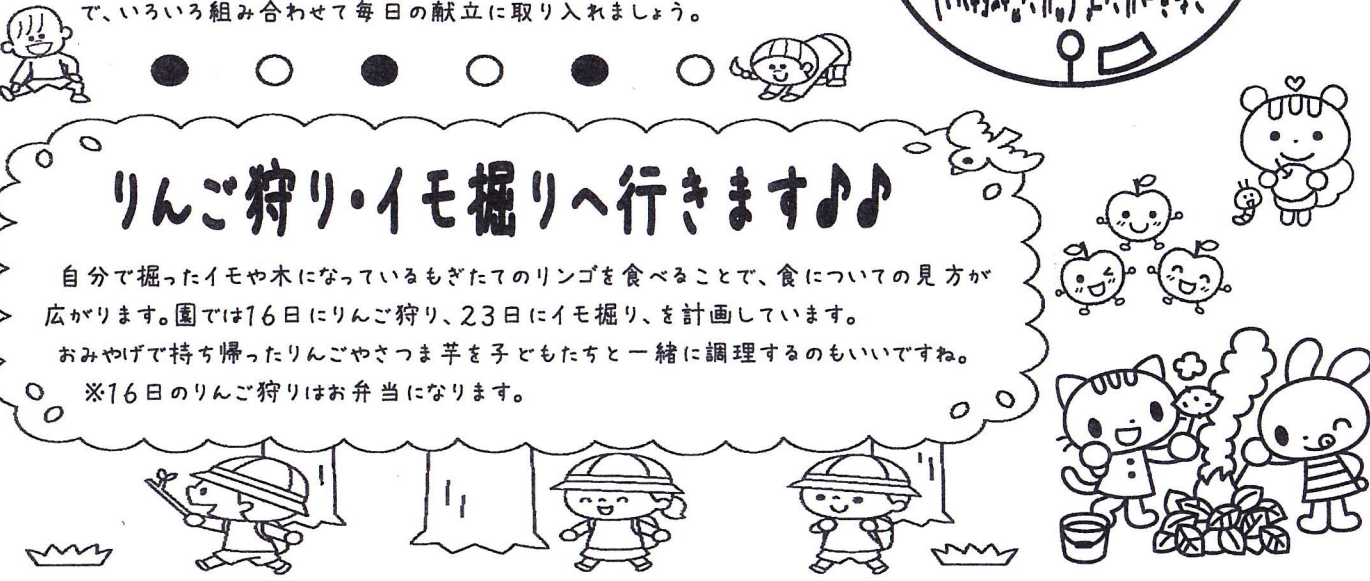 で、いろいろ組み合わせて毎日の献立に取り入れましょう。
りんご狩り・イモ掘りへ行きます♪♪
自分で掘ったイモや木になっているもぎたてのリンゴを食べることで、食についての見方が
広がります。園では16日にりんご狩り、23日にイモ掘り、を計画しています。
おみやげで持ち帰ったりんごやさつま芋を子どもたちと一緒に調理するのもいいですね。
※16日のりんご狩りはお弁当になります。